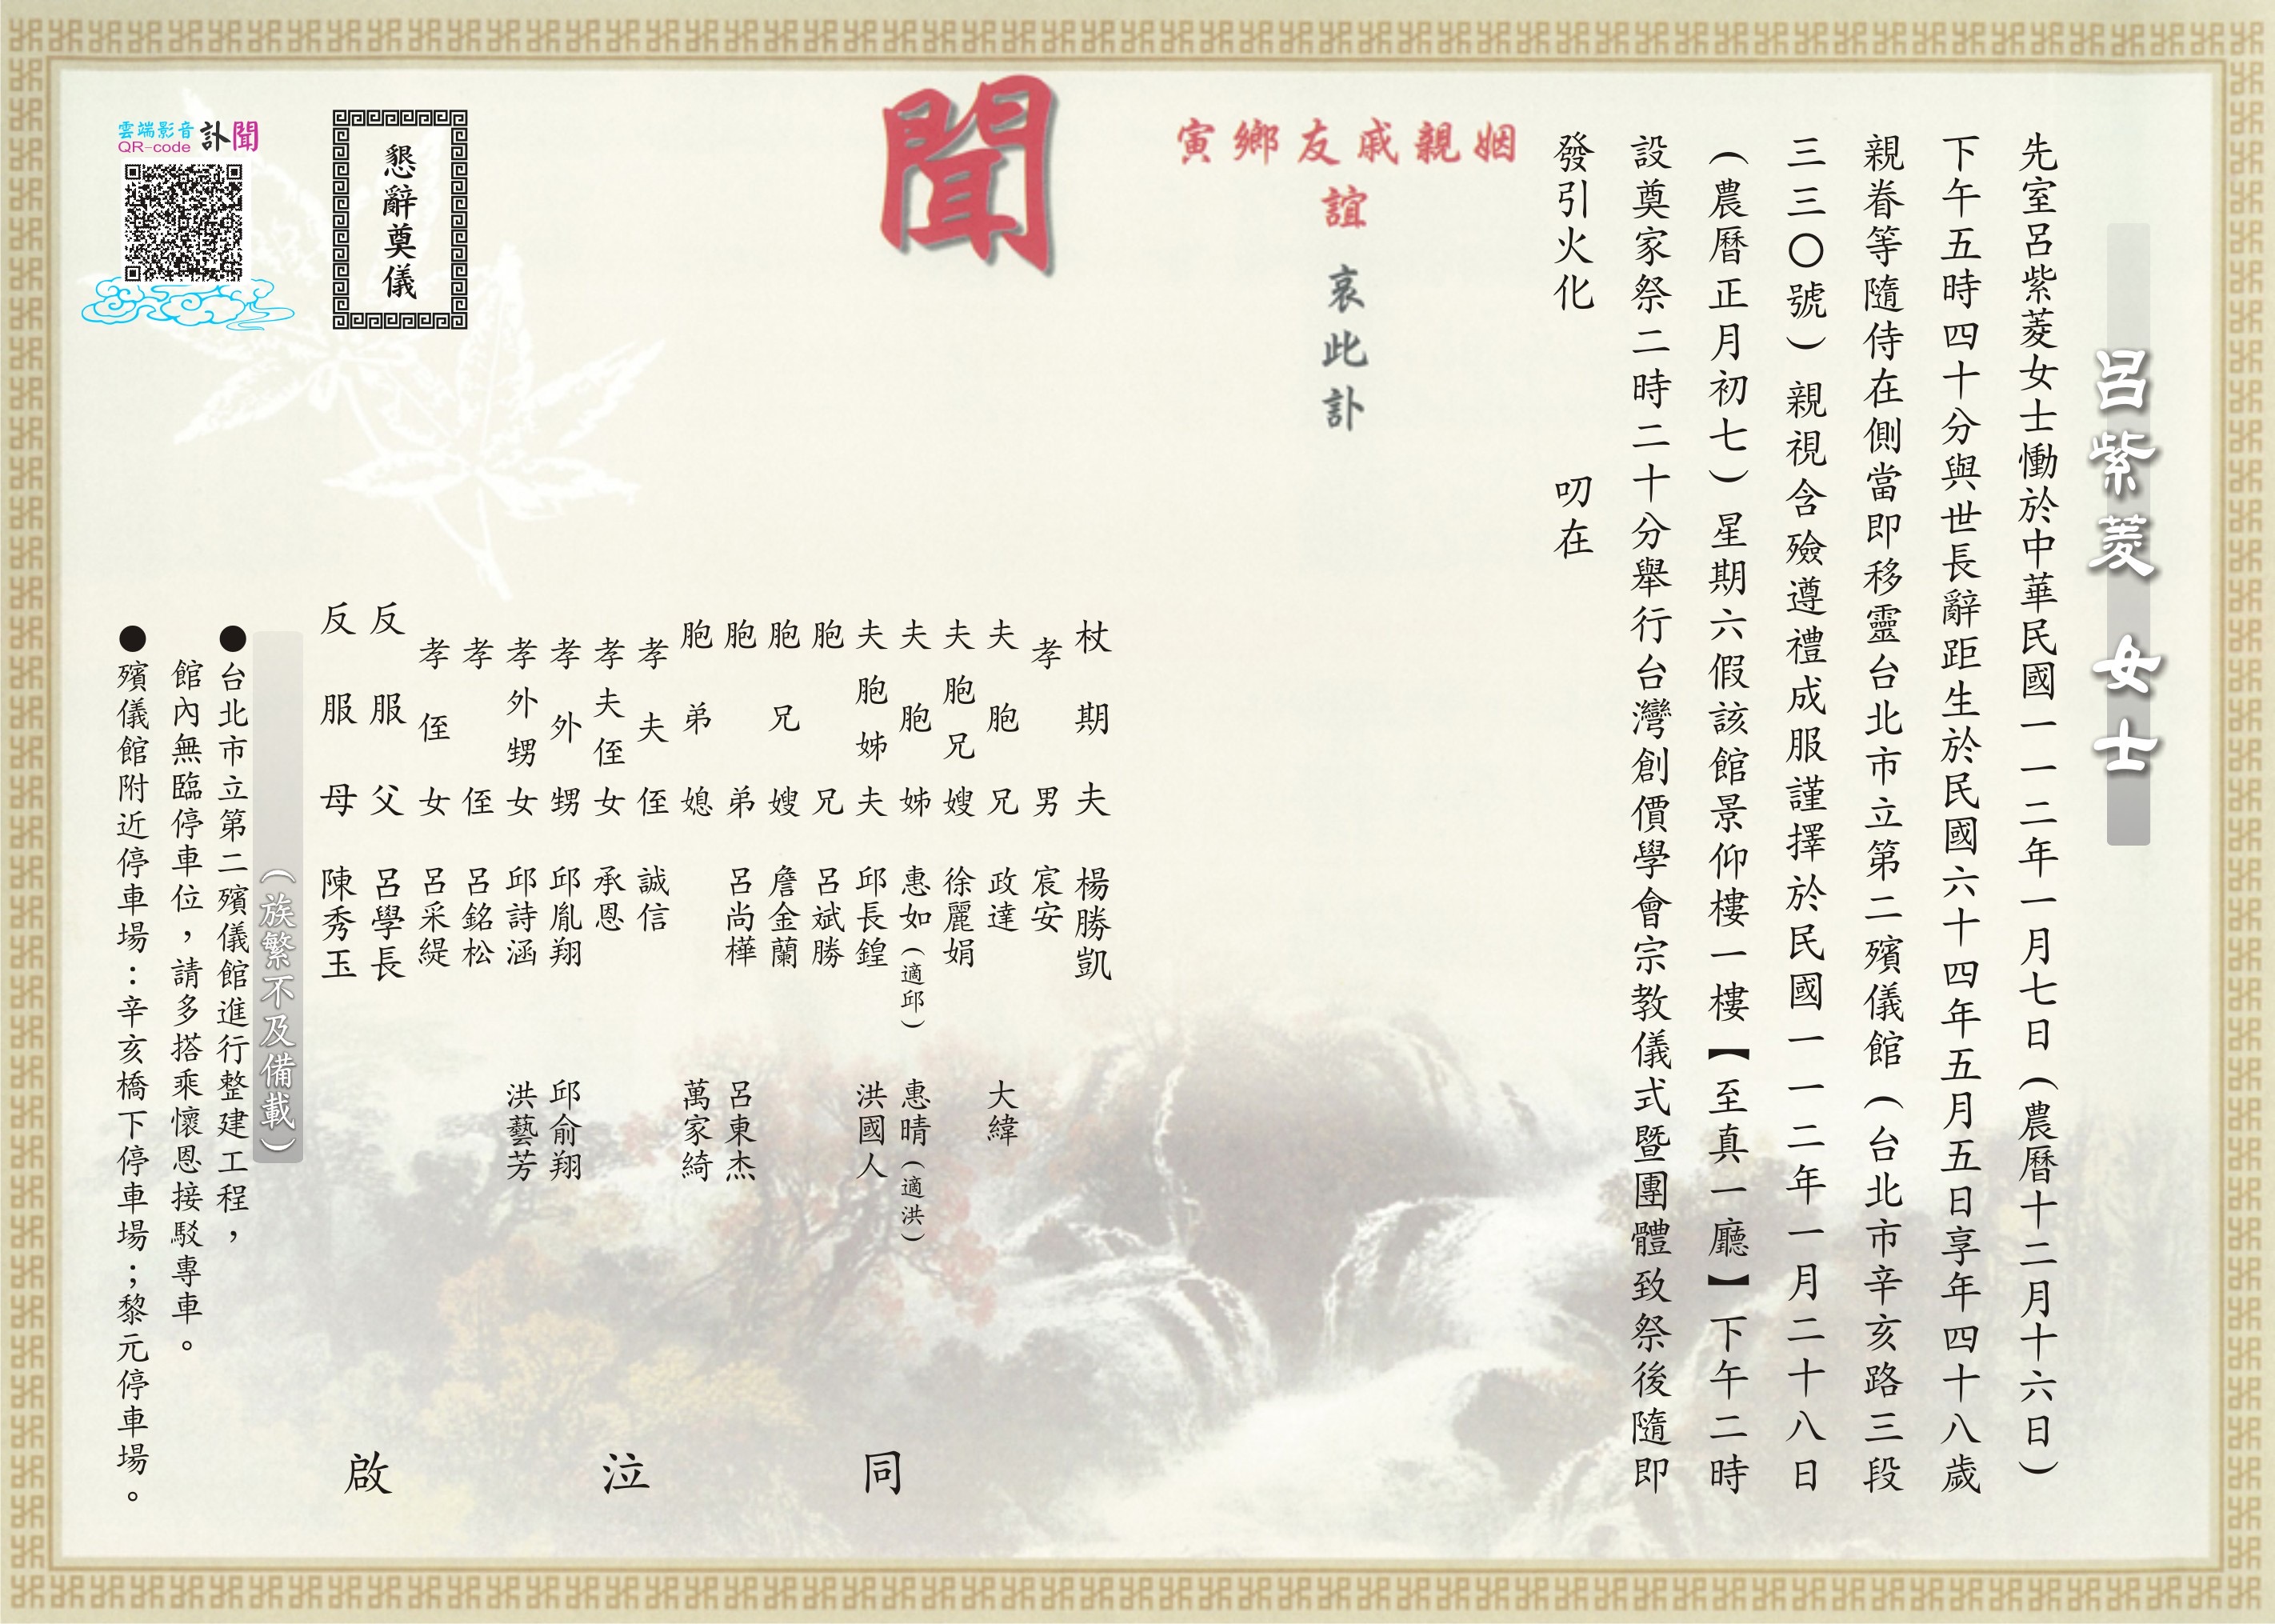 呂紫菱 女士
先室呂紫菱女士慟於中華民國一一二年一月七日（農曆十二月十六日）
下午五時四十分與世長辭距生於民國六十四年五月五日享年四十八歲
親眷等隨侍在側當即移靈台北市立第二殯儀館（台北市辛亥路三段
三三〇號）親視含殮遵禮成服謹擇於民國一一二年一月二十八日
（農曆正月初七）星期六假該館景仰樓一樓【至真一廳】下午二時
設奠家祭二時二十分舉行台灣創價學會宗教儀式暨團體致祭後隨即
發引火化 叨在
姻親戚友鄉寅
誼 哀此訃
聞
杖期夫 楊勝凱
孝男 宸安
夫胞兄 政達 大緯
夫胞兄嫂 徐麗娟
夫胞姊 惠如（適邱） 惠晴（適洪）
夫胞姊夫 邱長鍠 洪國人
胞兄 呂斌勝
胞兄嫂 詹金蘭
胞弟 呂尚樺 呂東杰
胞弟媳 萬家綺
孝夫侄 誠信
孝夫侄女 承恩
孝外甥 邱胤翔 邱俞翔
孝外甥女 邱詩涵 洪藝芳
孝侄 呂銘松
孝侄女 呂采緹
反服父 呂學長
反服母 陳秀玉
同泣啟
（族繁不及備載）
●台北市立第二殯儀館進行整建工程，
館內無臨停車位，請多搭乘懷恩接駁專車。
●殯儀館附近停車場：辛亥橋下停車場；黎元停車場。
懇辭奠儀
雲端影音 訃聞
QR-code